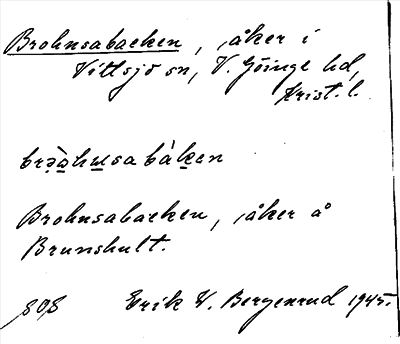 Brohusabacken, åker i
Vittsjö sn, V. Göinge hd,
Krist. l.
Brohusabacken, åker å
Brunshult.
808 Erik W. Bergenrud 1945.